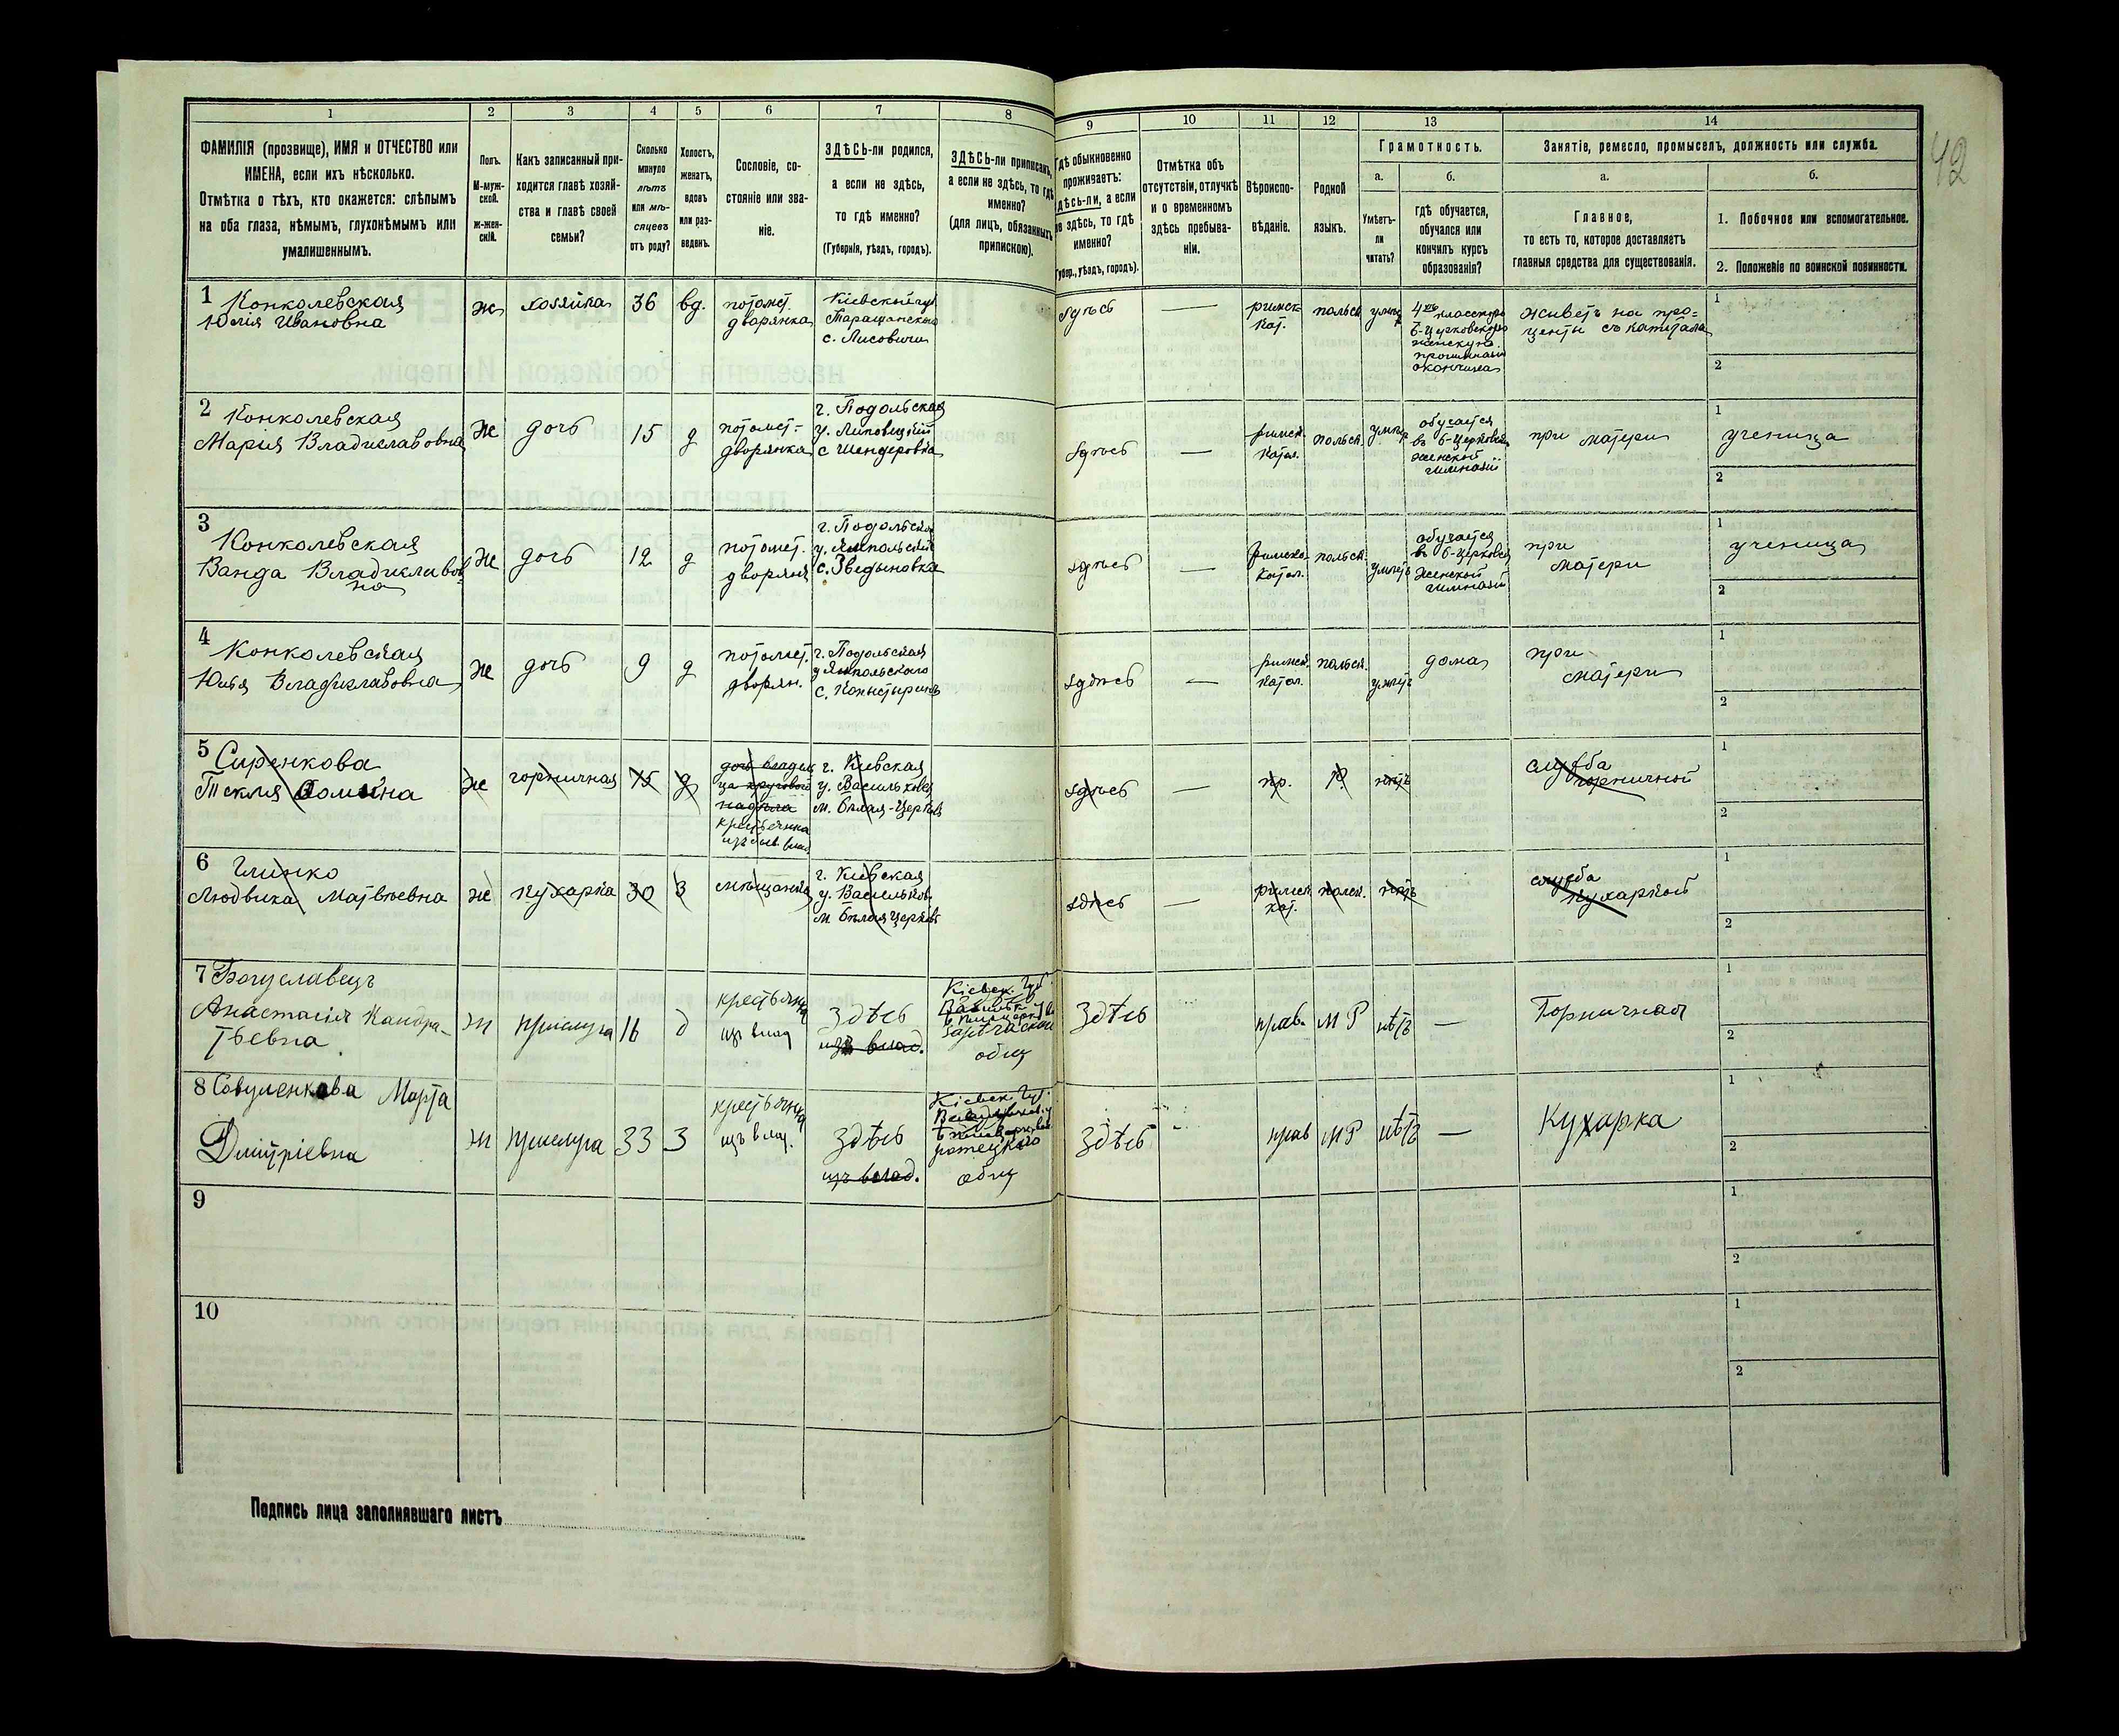 42
1
2
3
4
5
6
7
8
9
10
11
12
13
14
ФАМИЛІЯ (прозвище), ИМЯ и ОТЧЕСТВО или
ИМЕНА, если ихъ нѣсколько.
Отмѣтка о тѣхъ, кто окажется: слѣпымъ
на оба глаза, нѣмымъ, глухонѣмымъ или
умалишеннымъ.
Полъ.
М-муж-
ской.
Ж-жен-
скій.
Какъ записанный при-
ходится главѣ хозяй-
ства и главѣ своей
семьи?
Сколько
минуло
лѣтъ
или мѣ-
сяцевъ
отъ роду?
Холостъ,
женатъ,
вдовъ
или раз-
веденъ.
Сословіе, со-
стояніе или зва-
ніе.
ЗДѢСЬ-ли родился,
а если не здѣсь,
то гдѣ именно?
(Губернія, уѣздъ, городъ).
ЗДѢСЬ-ли приписанъ,
а если не здѣсь, то гдѣ
именно?
(для лицъ, обязанныхъ
припискою).
Гдѣ обыкновенно
проживаетъ:
здѣсь-ли, а если
не здѣсь, то гдѣ
именно?
(Губер., уѣздъ, городъ).
Отмѣтка объ
отсутствіи, отлучкѣ
и о временномъ
здѣсь пребыва-
ніи.
Вѣроиспо-
вѣданіе.
Родной
языкъ.
Грамотность.
а.
Умѣетъ-
ли
читать?
б.
гдѣ обучается,
обучался или
кончилъ курсъ
образованія?
Занятіе, ремесло, промыселъ, должность или служба.
а.
Главное,
то есть то, которое доставляетъ
главныя средства для существованія.
б.
1. Побочное или вспомогательное.
2. Положеніе по воинской повинности.
1
Конколевская
Юлія Ивановна
ж
хозяйка
36
вд.
потомст.
дворянка
Кіевской губ
Таращанскаго
с. Лисовичи
здѣсь
—
римск.
кат.
польск
женскую
окончила
живетъ на про-
центы съ капитала
1
2
2
Конколевская
Мария Владиславовна
ж
дочь
15
д
потомст-
дворянка
г. Подольская
у. Липовецкій
с Шендеровка
здѣсь
—
римск.
катол.
польск.
обучается
въ б-Церковской
женской
гимназіи
при матери
1
ученица
2
3
Конколевская
Ванда Владиславов
на
ж
дочь
12
д
потомст.
г. Подольская
у. Ямпольскій
здѣсь
—
римско
катол.
польск.
умѣетъ
обучается
въ б-Церковск
женской
гимназіи
при
матери
1
ученица
2
4
Конколевская
Юлья Владиславовна
ж
дочь
9
д
потомст.
дворян.
г. Подольская
у Ямпольскаго
здѣсь
—
римск.
катол.
польск.
умѣетъ
дома
при
матери
1
2
5
Сиренкова
Текля Фомина
ж
горничная
15
д
крестьянка
г. Кіевская
у. Васильковск
м. бѣлая-Церковь
здѣсь
—
пр.
нѣтъ
служба
горничной
1
2
6
Глинко
Людвика Матвѣевна
ж
кухарка
30
З
мѣщанка
г. Кіевская
у. Васильков
м бѣлая Церковь
здѣсь
—
римск
кат.
польск.
нѣтъ
служба
кухаркой
1
2
7
Богуславецъ
Анастасія Кандра-
тьевна
ж
прислуга
16
д
крестьянка
изъ влад
здѣсь
изъ влад.
Кіевск. Губ.
общ
Здѣсь
прав.
МР
нѣтъ
—
Горничная
1
2
8
Совуленкова Марта
Дмитріевна
ж
прислуга
33
З
крестьянка
изъ влад.
здѣсь
изъ влад.
Кіевск. Губ.
общ
здѣсь
прав
МР
нѣтъ
—
Кухарка
1
2
9
1
2
10
1
2
Подпись лица заполнявшаго листъ